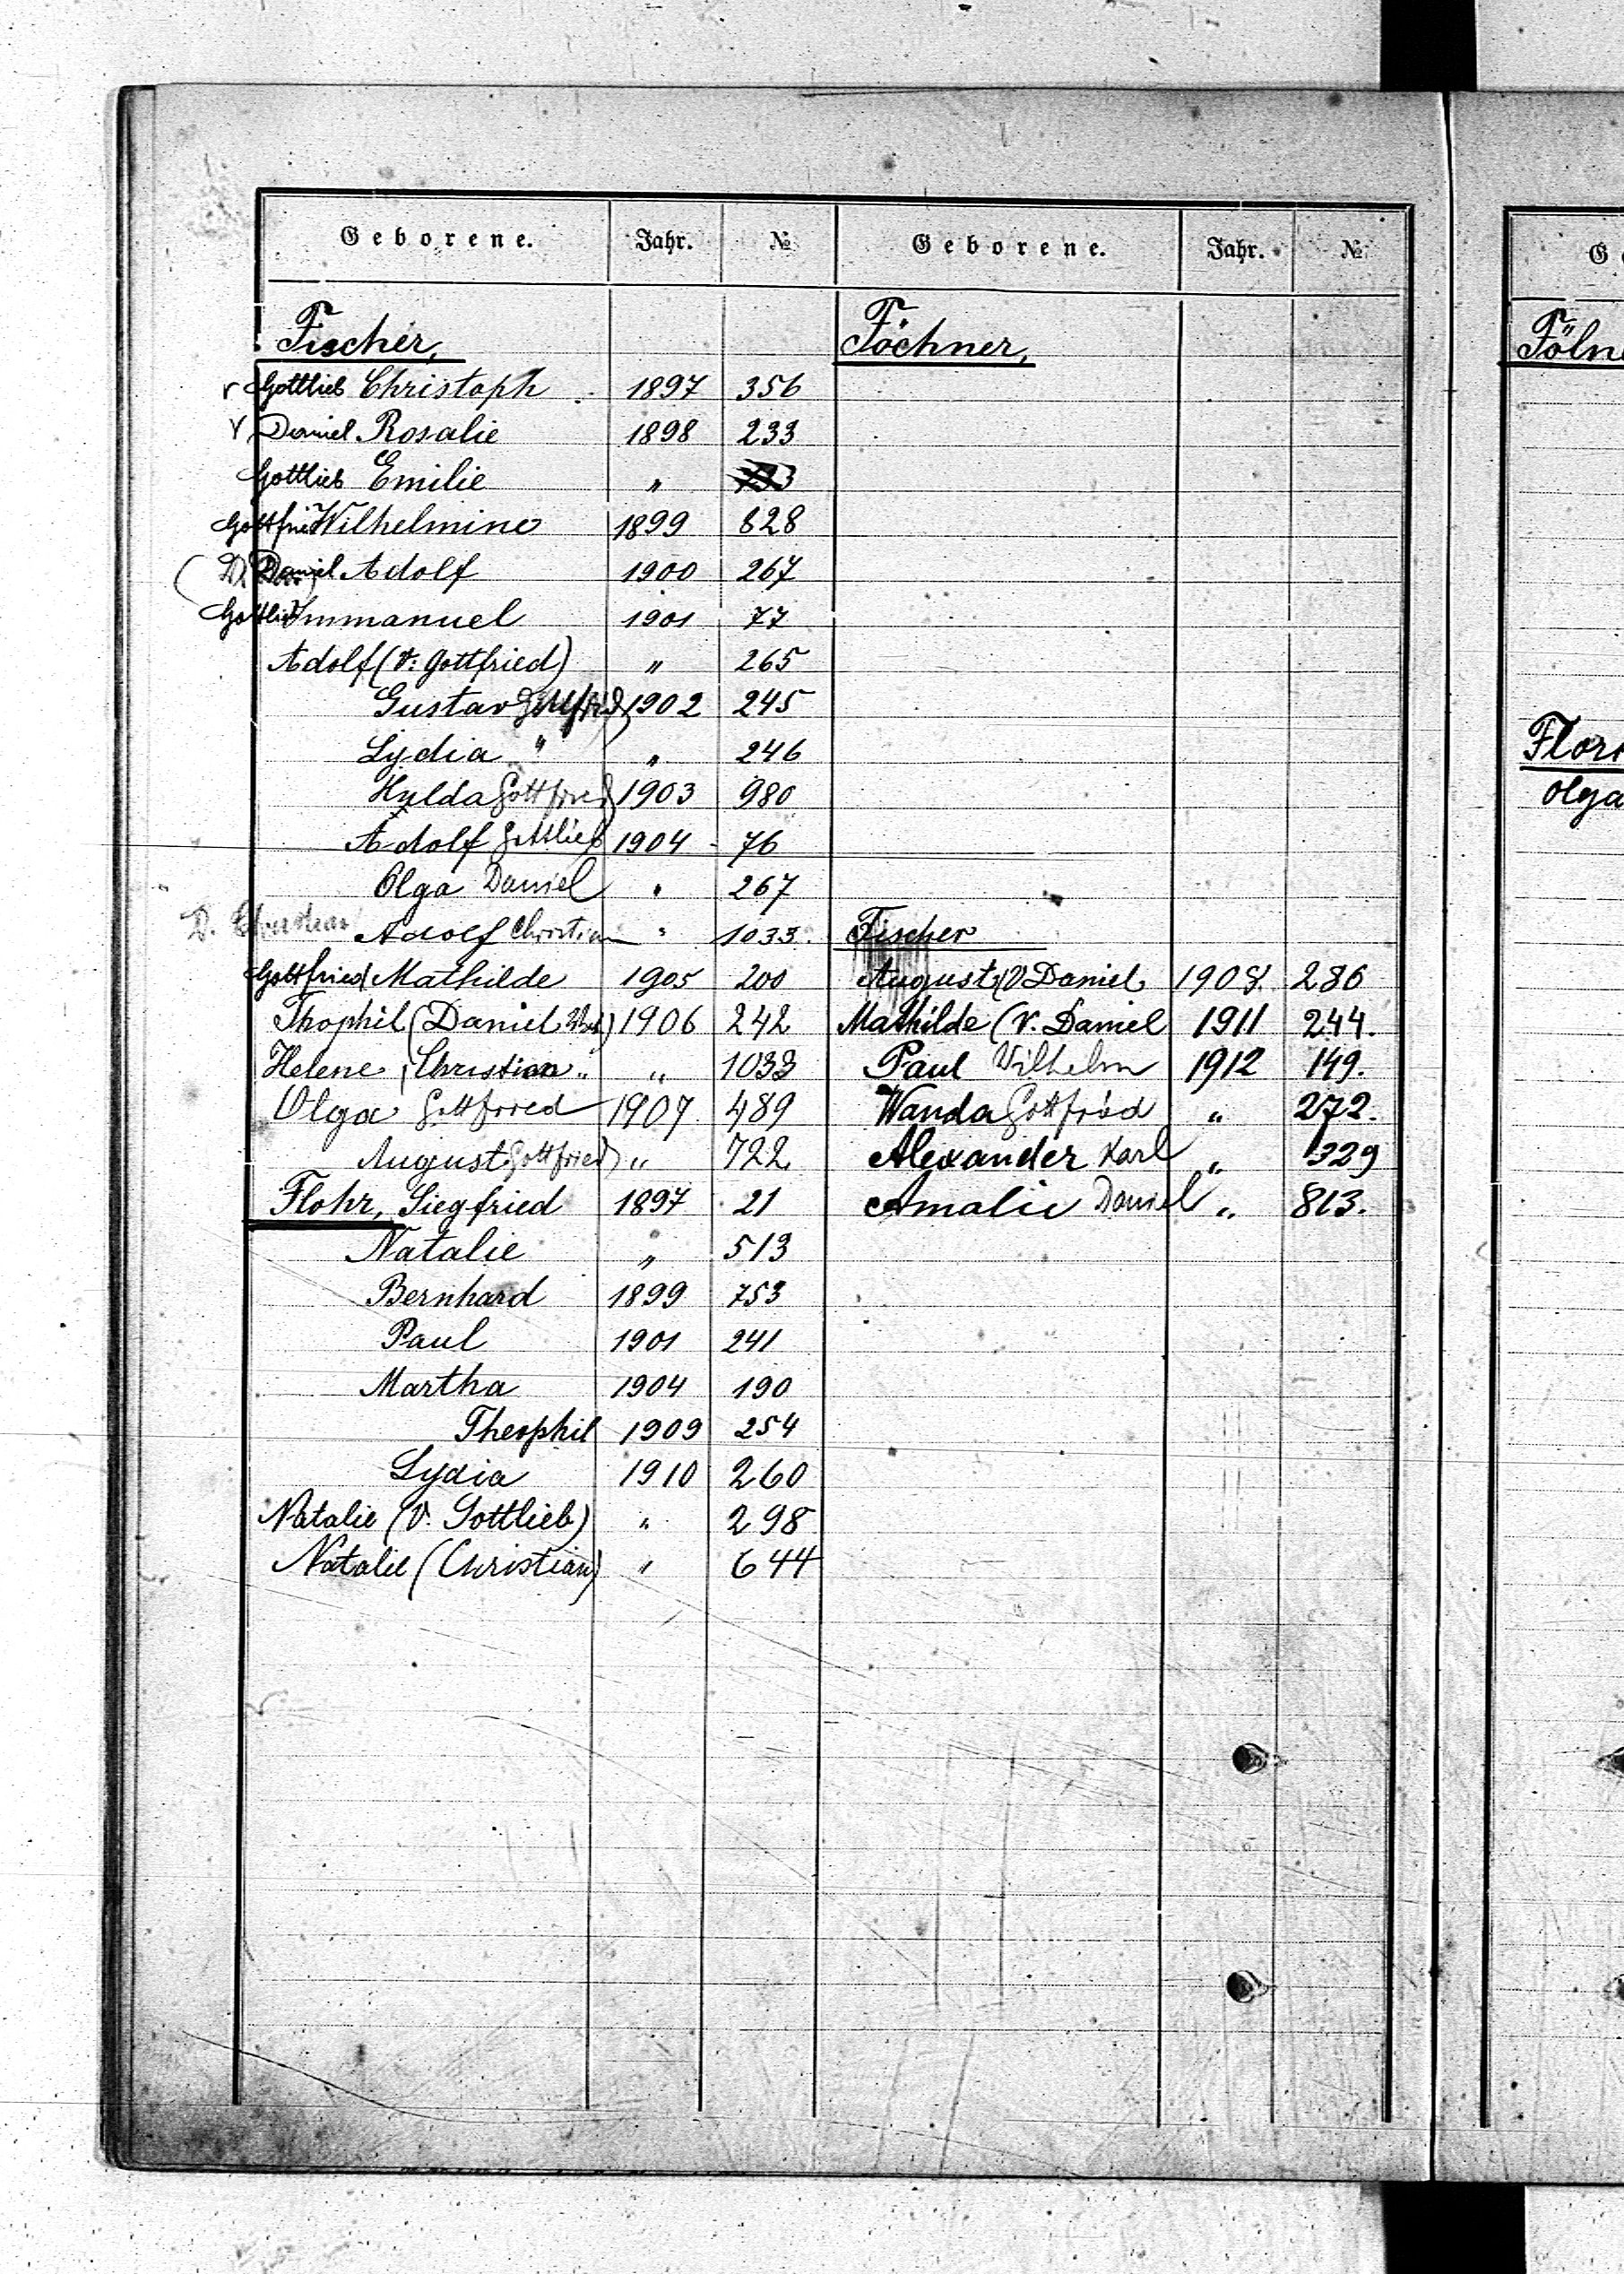 Geborene. Jahr. №
Fischer,
Gottlieb Christoph 1897 356
Daniel Rosalie 1898 233
Gottlieb Emilie " 733
Gottfried Wilhelmine 1899 828
(D. Daniel Adolf 1900 267
Gottlieb Immanuel 1901 77
Adolf (V: Gottfried) " 265
Gustav Gottfried) 1902 245
Lydia " " 246
Hulda Gottfried) 1903 980
Adolf Gottlieb 1904 76
Olga Daniel " 267
D. Christian Adolf Christian " 1033.
Gottfried Mathilde 1905 200
Thophil (Daniel) 1906 242
Helene, Christian " " 1033
Olga Gottfried 1907 489
August Gottfried) " 722
Flohr, Siegfried 1897 21
Natalie " 513
Bernhard 1899 753
Paul 1901 241
Martha 1904 190
Theophil 1909 254
Lydia 1910 260
Natalie (V. Gottlieb) " 298
Natalie (Christian) " 644
Geborene. Jahr. №
Föchner,
Fischer
August (V Daniel 286
Mathilde (V. Daniel 1911 244.
Paul Wilhelm 1912 149.
Wanda Gottfried " 272.
Alexander Karl " 329
Amalie Daniel " 813.
G
Föln
Flor
Olga